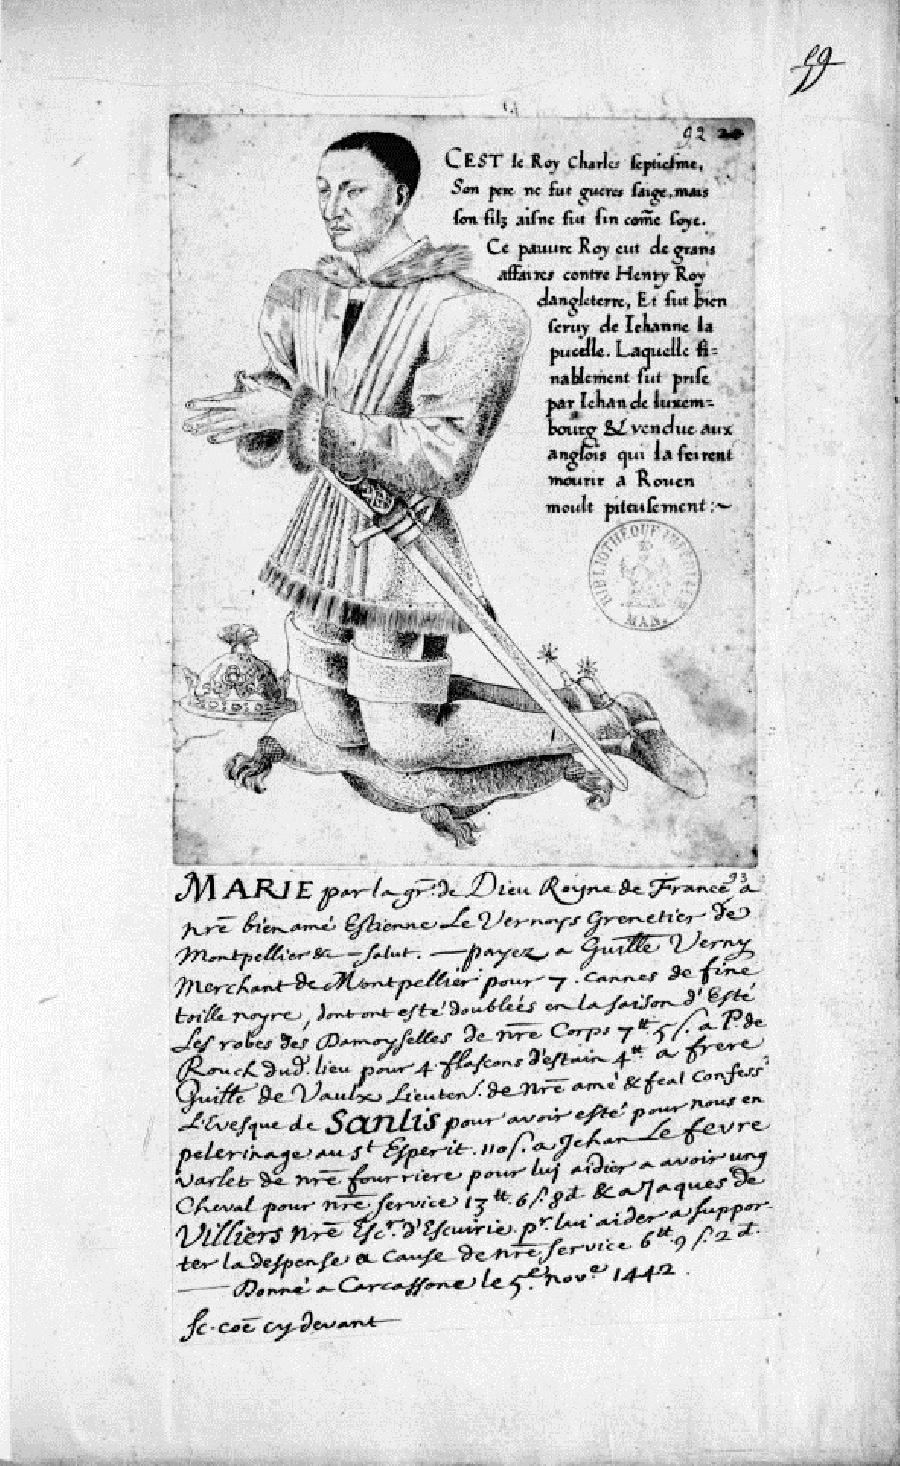 59
92
CEST le Roy Charles septiesme,
Son pere ne fut gueres saige, mais
son filz aisne fut fin com̃e soye.
Ce pauure Roy eut de grans
affaires contre Henry Roy
dangleterre, Et fut bien
seruy de Iehanne la
pucelle. Laquelle fi=
nablement fut prise
par Iehan de luxem=
bourg & vendue aux
anglois qui la feirent
mourir a Rouen
moult piteusement :~
BIBLIOTHÈQUE IMPÉRIALE
MAN.
93
MARIE par la gr̃. de Dieu Royne de France a
nr̃e bien amé Estienne Le Vernoys Grenetier de
Montpellier &c — salut. — payez a Guill̃e Verny
Merchant de Montpellier pour 7. cannes de fine
toille noyre, dont ont esté doublées en la saison d'Esté
Les robes des Damoyselles de nr̃e Corps 7tt 5 s. a P. de
Rouch dud. lieu pour 4 flascons d'estain 4tt a frere
Guill̃e de Vaulx Lieuten.t de nr̃e amé & feal Confess.r
L'Evesque de Sanlis pour avoir esté pour nous en
pelerinage au St Esperit. 110 s. a Jehan Le fevre
varlet de nr̃e fourriere pour lui aidier a avoir ung
Cheval pour nr̃e service 13tt. 6 s. 8d & a Jaques de
Villiers nr̃e Esc.r d'Escuirie pr. lui aider a suppor-
ter la despense a cause de nr̃e service 6tt 9 s. 2 d.
— Donné a Carcassone le 5.e nov.e 1442.
sc. cõe cy devant